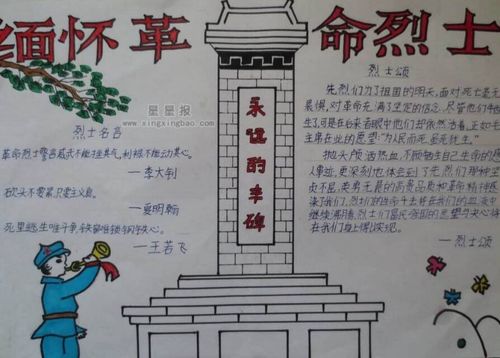 缅怀革命烈士
星星报
www.xingxingbao.com
烈士名言
革命烈士警告威武不能挫其气,利禄不能动其心。
—李大钊
砍头不要紧,只要主义真。
—夏明翰
死里逃生唯斗争,铁窗难锁钢铁心。
—王若飞
永远的丰碑
烈士颂
先烈们为了祖国的明天,面对死亡毫无
畏惧,对革命充满了坚定的信念,尽管他们牺
生了,可是在后来者眼中他们却依然活着,正如毛
主席在世的愿望:"为人民而死,虽死犹生。"
抛头颅洒热血,不顾牺牲自己生命的感
人事迹,更深刻也体会到了先烈们那种坚
贞不屈,英勇无畏的高贵品质和革命精神感
染了我们,烈士们的生命 在我们的血液中
继续 ,烈士们富民强国的愿望与决心将
在我们身上得以实现。
—烈士颂